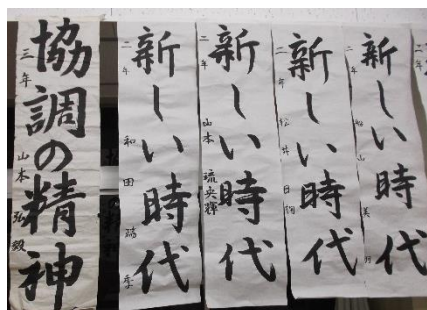 協調の精神
三年 山本
新しい時代
二年 和田
新しい時代
二年 山本 琉央輝
新しい時代
二年 松井
新しい時代
二年